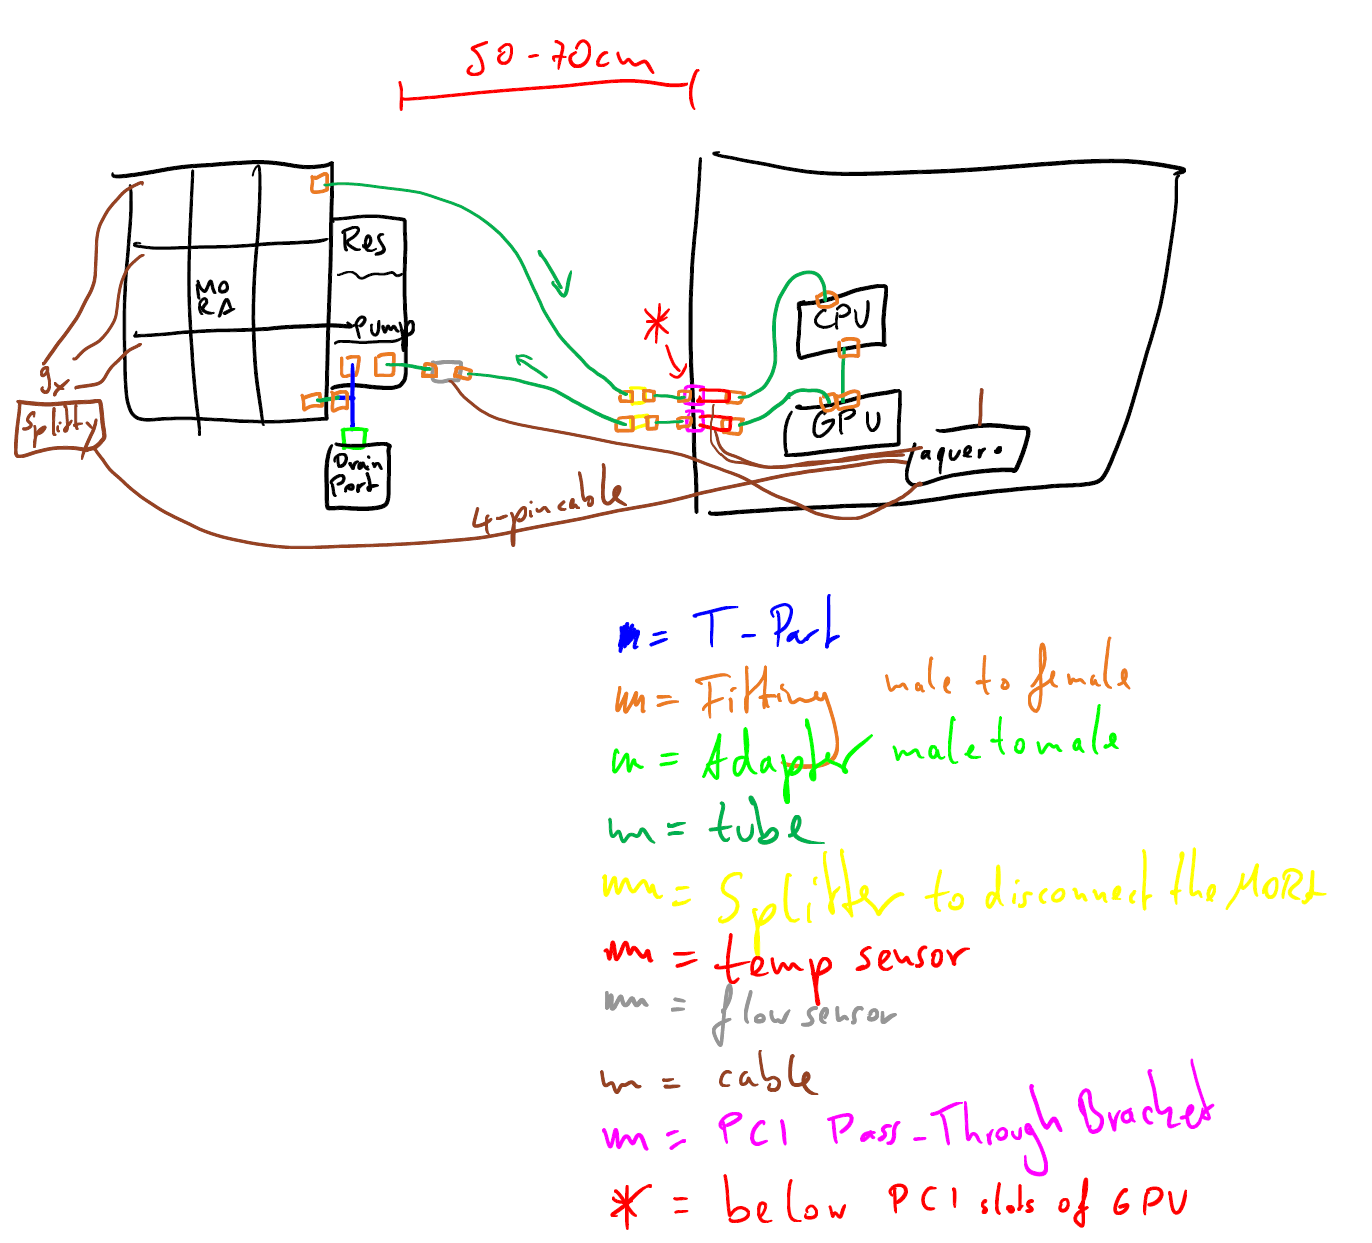 50-70cm
Res
MO
RA
Pump
CPU
9x
Splitty
GPU
aquero
Drain
Port
4-pin cable
= T-Part
= Fitting male to female
= Adapter male to male
= tube
= Splitter to disconnect the MORA
= temp sensor
= flow sensor
= cable
= PCI Pass-Through Bracket
* = below PCI slots of GPU